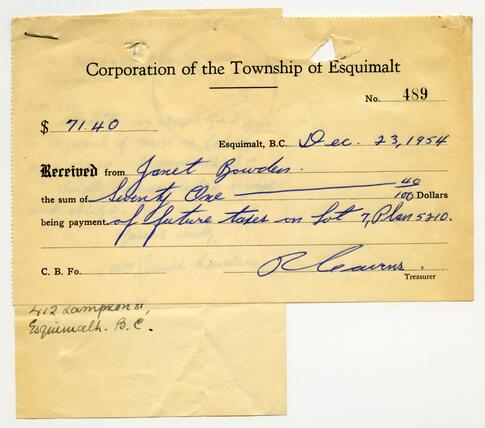 Corporation of the Township of Esquimalt
No. 489
$ 71.40
Esquimalt, B.C. Dec. 23, 1954
Received from Janet Bowden.
the sum of Seventy One 40/100 Dollars
being payment of future taxes on Lot 7, Plan 5210.
C. B. Fo.
Treasurer
412 Lampson St,
Esquimalt. B.C.